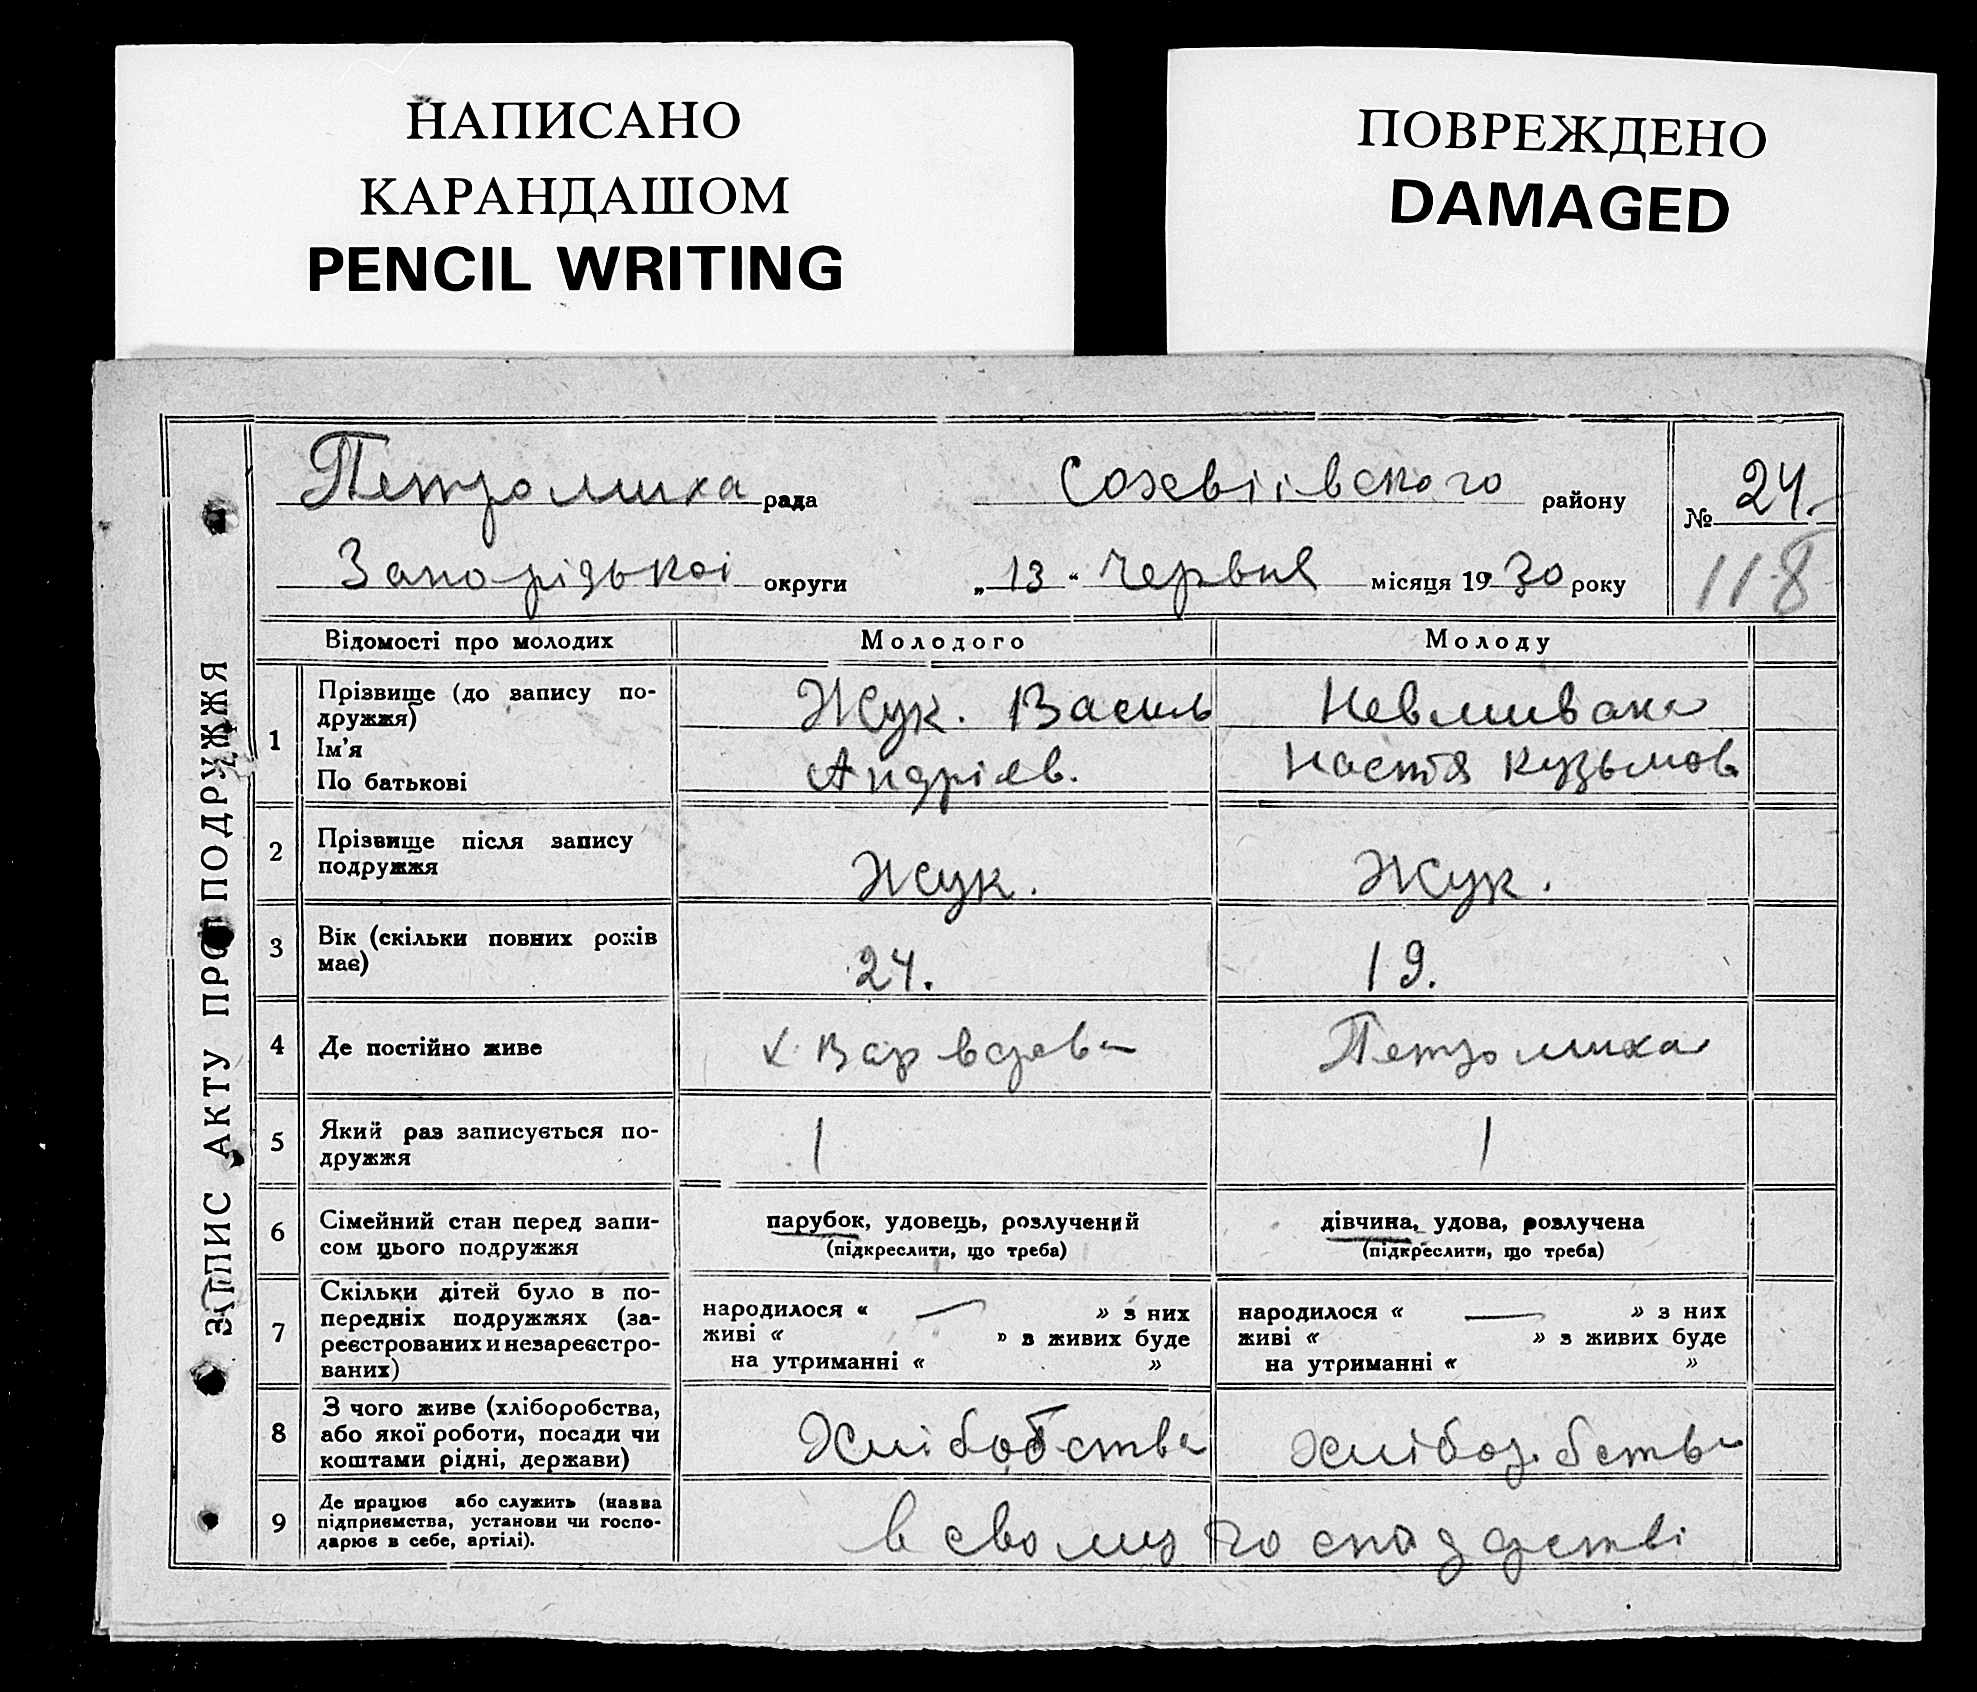 НАПИСАНО
КАРАНДАШОМ
PENCIL WRITING
ПОВРЕЖДЕНО
DAMAGED
ЗАПИС АКТУ ПРО ПОДРУЖЖЯ
Петромиха рада Софевіівского району № 24.
Запорізькоі округи „ 13 “ Червня місяця 19 30 року 118
Відомості про молодих Молодого Молоду
1 Прізвище (до запису по-
дружжя)
Ім'я
По батькові
Жук. Василь
Андріев.
Невмивака
Настя Кузьмов
2 Прізвище після запису
подружжя
Жук. Жук.
3 Вік (скільки повних років
має)
24. 19.
4 Де постійно живе х. Петромиха
5 Який раз записується по-
дружжя
1 1
6 Сімейний стан перед запи-
сом цього подружжя
парубок, удовець, розлучений
(підкреслити, що треба)
дівчина, удова, розлучена
(підкреслити, що треба)
7 Скільки дітей було в по-
передніх подружжях (за-
реєстрованих и незареєстро-
ваних)
народилося « — » з них
живі « » з живих буде
на утриманні « »
народилося « — » з них
живі « » з живих буде
на утриманні « »
8 З чого живе (хліборобства,
або якої роботи, посади чи
коштами рідні, держави)
Хлібобства хліборобства
9 Де працює або служить (назва
підприємства, установи чи госпо-
дарює в себе, артілі).
в свому господарстві